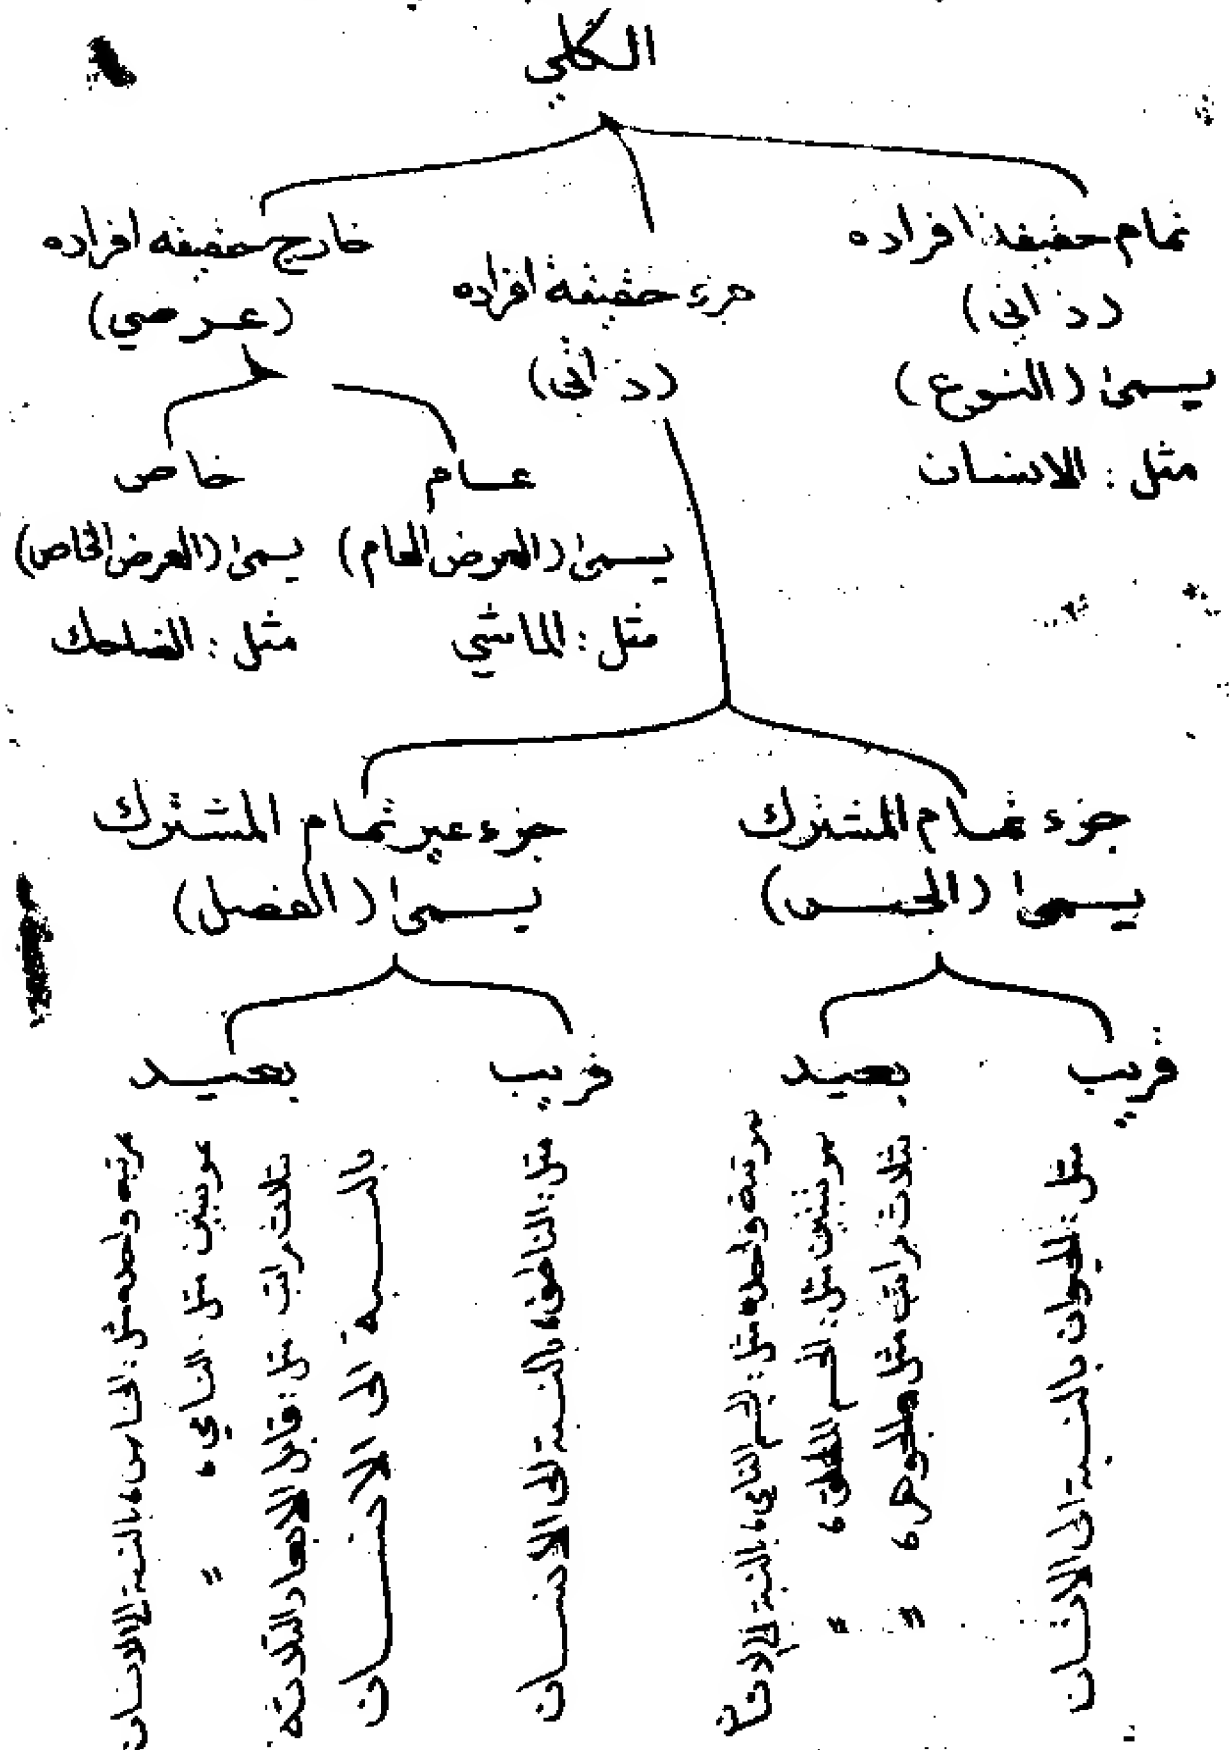 الكلي
تمام حقيقة افراده
(ذاتي)
يسمى (النوع)
مثل : الانسان
جزء حقيقة افراده
(ذاتي)
خارج حقيقة افراده
(عرضي)
عام
يسمى (العرض العام)
مثل : الماشي
خاص
يسمى (العرض الخاص)
مثل : الضاحك
جزء تمام المشترك
يسمى (الجنس)
جزء غير تمام المشترك
يسمى (الفصل)
قريب
مثل : الحيوان بالنسبة الى الانسان
بعيد
ثلاث مراتب مثل الجوهر ، "
مرتبتين مثل : الجسم المطلق ، "
مرتبة واحدة مثل : الجسم النامي ، بالنسبة الى الانسان
قريب
مثل : الناطق ، بالنسبة الى الانسان
بعيد
بالنسبة الى الانسان
ثلاث مراتب مثل : قابل الابعاد الثلاثة
مرتبتين مثل النامي ، "
مرتبه واحده مثل : الحساس ، بالنسبة الى الانسان